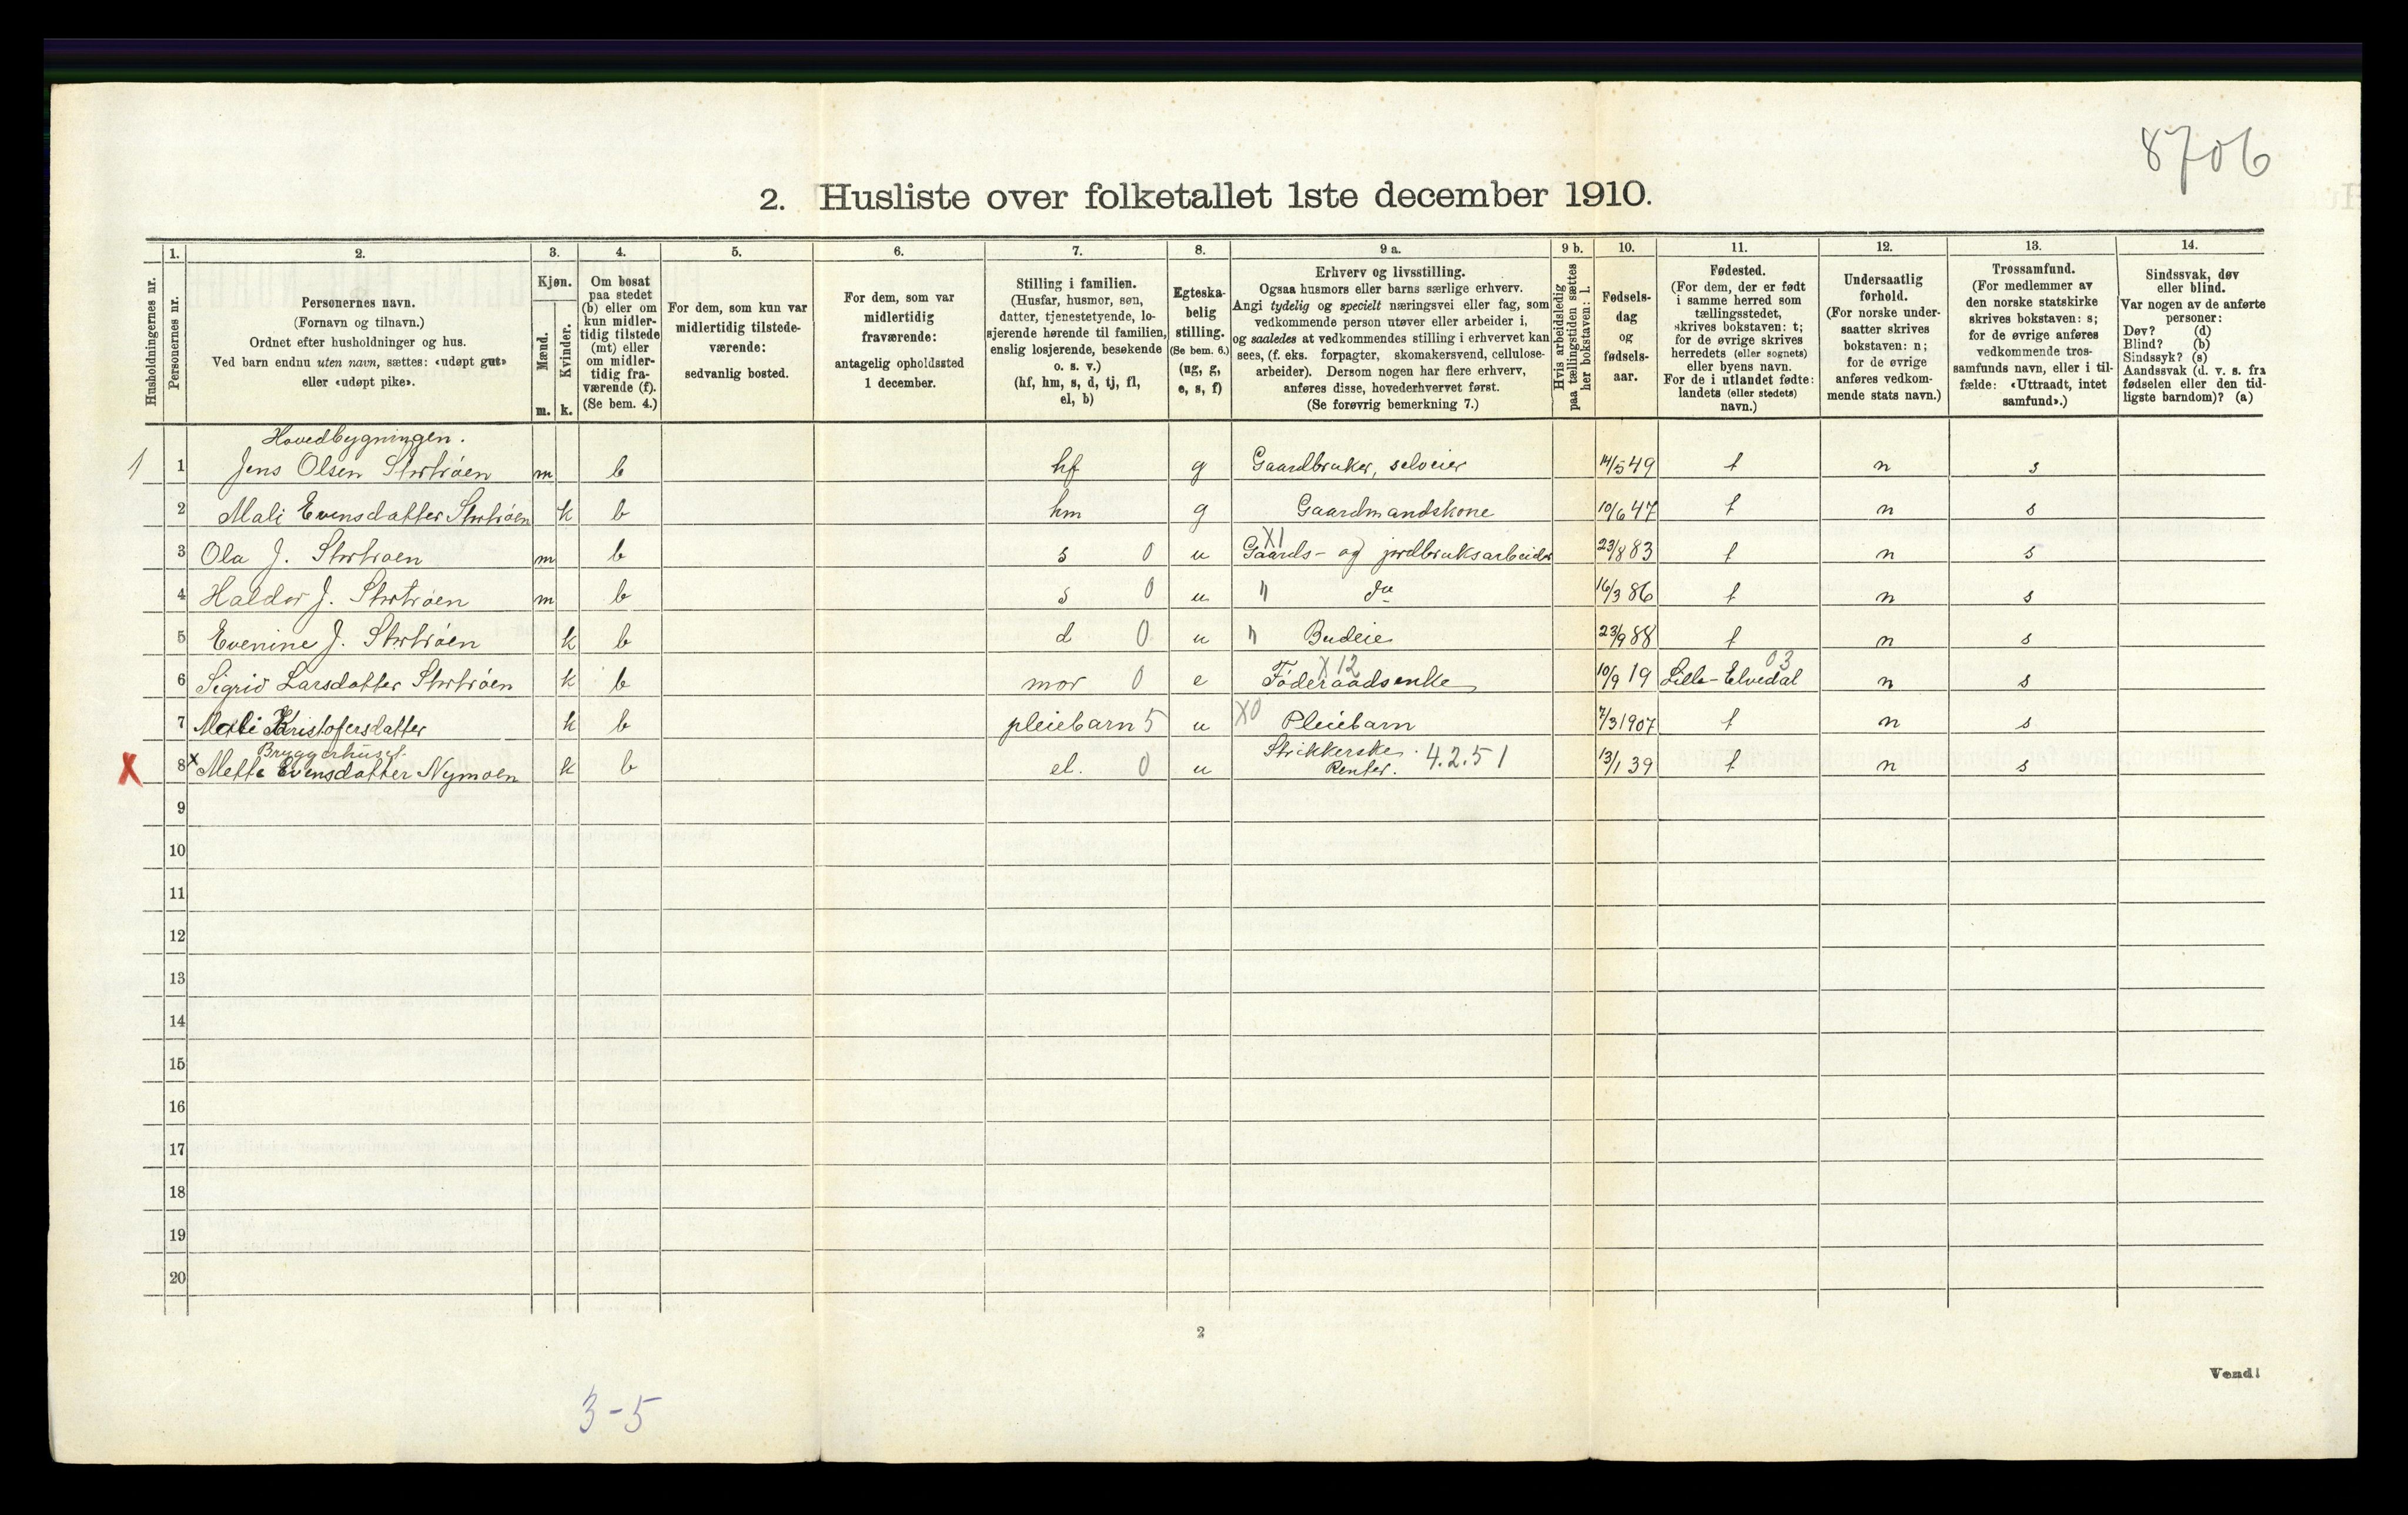 8706
2. Husliste over folketallet 1ste december 1910.
Husholdningernes nr.
1.
Personernes nr.
2.
Personernes navn.
(Fornavn og tilnavn.)
Ordnet efter husholdninger og hus.
Ved barn endnu uten navn, sættes: «udøpt gut»
eller «udøpt pike».
3.
Kjøn.
Mænd.
Kvinder.
m. k.
4.
Om bosat
paa stedet
(b) eller om
kun midler-
tidig tilstede
(mt) eller
om midler-
tidig fra-
værende (f).
(Se bem. 4.)
5.
For dem, som kun var
midlertidig tilstede-
værende:
sedvanlig bosted.
6.
For dem, som var
midlertidig
fraværende:
antagelig opholdssted
1 december.
7.
Stilling i familien.
(Husfar, husmor, søn,
datter, tjenestetyende, lo-
sjerende hørende til familien,
enslig losjerende, besøkende
o. s. v.)
(hf, hm, s, d, tj, fl,
el, b)
8.
Egteska-
belig
stilling.
(Se bem. 6.)
(ug, g,
e, s, f)
9 a.
Erhverv og livsstilling.
Ogsaa husmors eller barns særlige erhverv.
Angi tydelig og specielt næringsvei eller fag, som
vedkommende person utøver eller arbeider i,
og saaledes at vedkommendes stilling i erhvervet kan
sees, (f. eks. forpagter, skomakersvend, cellulose-
arbeider). Dersom nogen har flere erhverv,
anføres disse, hovederhvervet først.
(Se forøvrig bemerkning 7.)
9 b.
Hvis arbeidsledig
paa tællingstiden sættes
her bokstaven: l.
10.
Fødsels-
dag
og
fødsels-
aar.
11.
Fødested.
(For dem, der er født
i samme herred som
tællingsstedet,
skrives bokstaven: t;
for de øvrige skrives
herredets (eller sognets)
eller byens navn.
For de i utlandet fødte:
landets (eller stedets)
navn.)
12.
Undersaatlig
forhold.
(For norske under-
saatter skrives
bokstaven: n;
for de øvrige
anføres vedkom-
mende stats navn.)
13.
Trossamfund.
(For medlemmer av
den norske statskirke
skrives bokstaven: s;
for de øvrige anføres
vedkommende tros-
samfunds navn, eller i til-
fælde: «Uttraadt, intet
samfund».)
14.
Sindssvak, døv
eller blind.
Var nogen av de anførte
personer:
Døv? (d)
Blind? (b)
Sindssyk? (s)
Aandssvak (d. v. s. fra
fødselen eller den tid-
ligste barndom)? (a)
Hovedbygningen.
1 1 Jens Olsen Strtrøen m b hf g Gaardbruker, selveier 14/5 49 t n s
2 Mali Evensdatter Strtrøen k b hm g Gaardmandskone 10/6 47 t n s
X1
3 Ola J. Strtrøen m b s 0 u Gaards- og jordbruksarbeider 23/8 83 t n s
4 Haldor J. Strtrøen m b s 0 u " do 16/3 86 t n s
5 Evenine J. Strtrøen k b d 0 u " Budeie 23/9 88 t n s
X12 03
6 Sigrid Larsdatter Strtrøen k b mor 0 e Føderaadsenke 10/9 19 Lille-Elvedal n s
7 Mali Kristofersdatter k b pleiebarn 5 u X0 Pleiebarn 7/3 1907 t n s
Bryggerhuset. Strikkerske. 4.2.51
X 8 x Mette Evensdatter Nymoen k b el. 0 u Renter. 13/1 39 t n s
9
10
11
12
13
14
15
16
17
18
19
20
2
Vend!
3-5